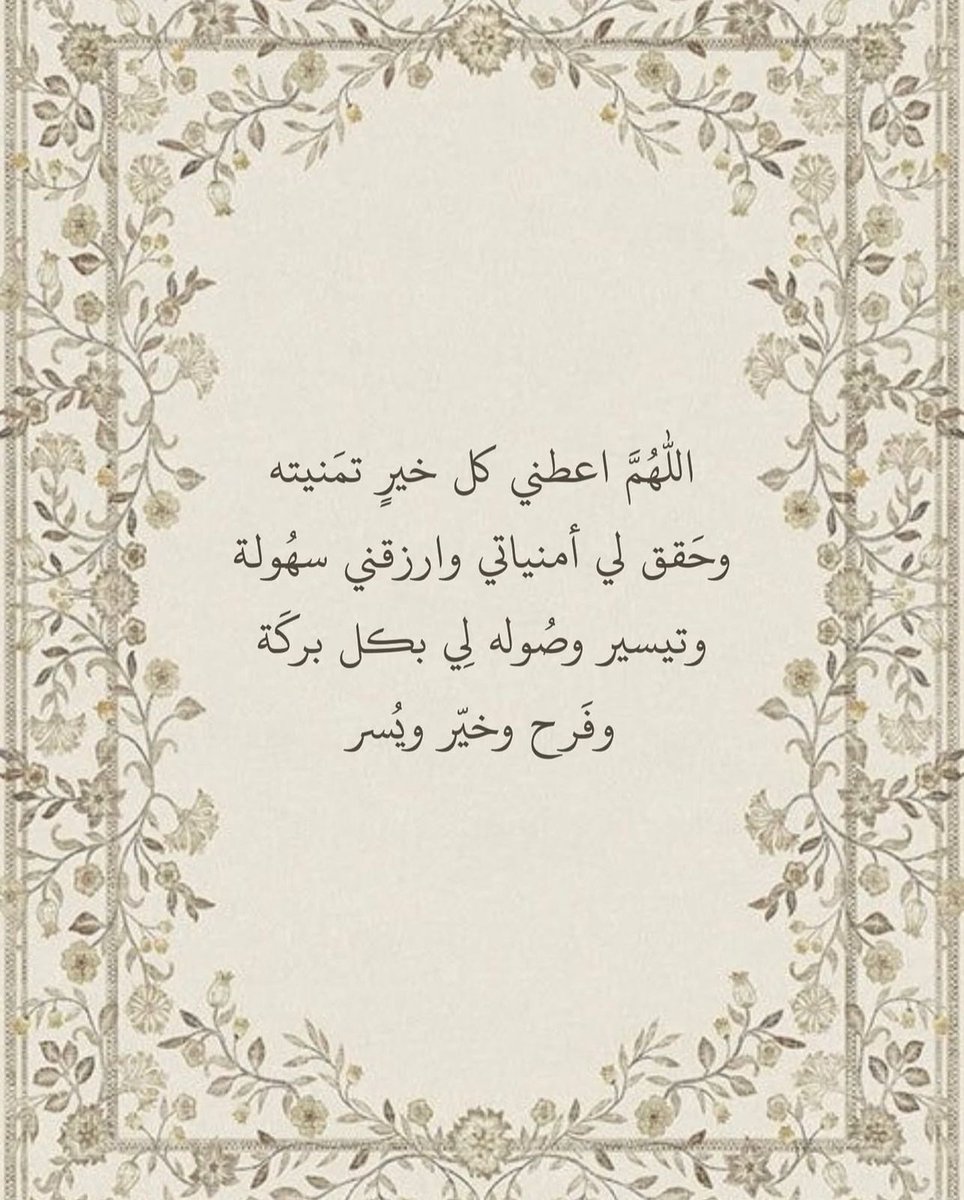 اللّٰهُمَّ اعطني كل خيرٍ تمَنيته
وحَقق لي أمنياتي وارزقني سهُولة
وتيسير وصُوله لِي بكل بركَة
وفَرح وخيّر ويُسر